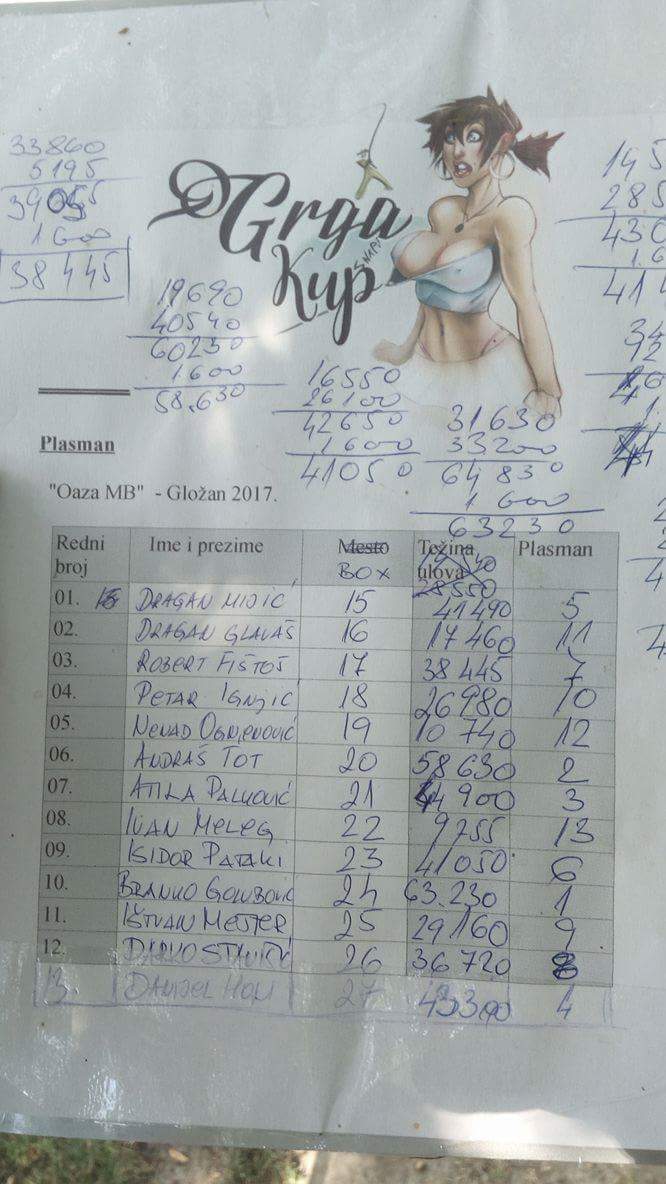 33860
5195
39055
1600
38445
Grga
Kup
19690
40540
60230
1600
58.630
16550
26100
42650
1600
41050
31630
33200
64830
1600
63230
Plasman
"Oaza MB" - Gložan 2017.
Redni broj Ime i prezime Mesto BOX Težina ulova Plasman
28550
01. DRAGAN MIJIĆ 15 41490 5
02. DRAGAN GLAVAŠ 16 17460 11
03. ROBERT FIŠTOŠ 17 38445 7
04. PETAR IGNJIĆ 18 26980 10
05. NENAD OGNJENOVIĆ 19 10740 12
06. ANDRAŠ TOT 20 58630 2
07. ATILA PALKOVIĆ 21 44900 3
08. IVAN MELEG 22 9255 13
09. ISIDOR PATAKI 23 41050 6
10. BRANKO GOLUBOVIĆ 24 63.230 1
11. IŠTVAN MESTER 25 29160 9
12. DARKO 26 36720 8
13. DANIJEL 27 43300 4